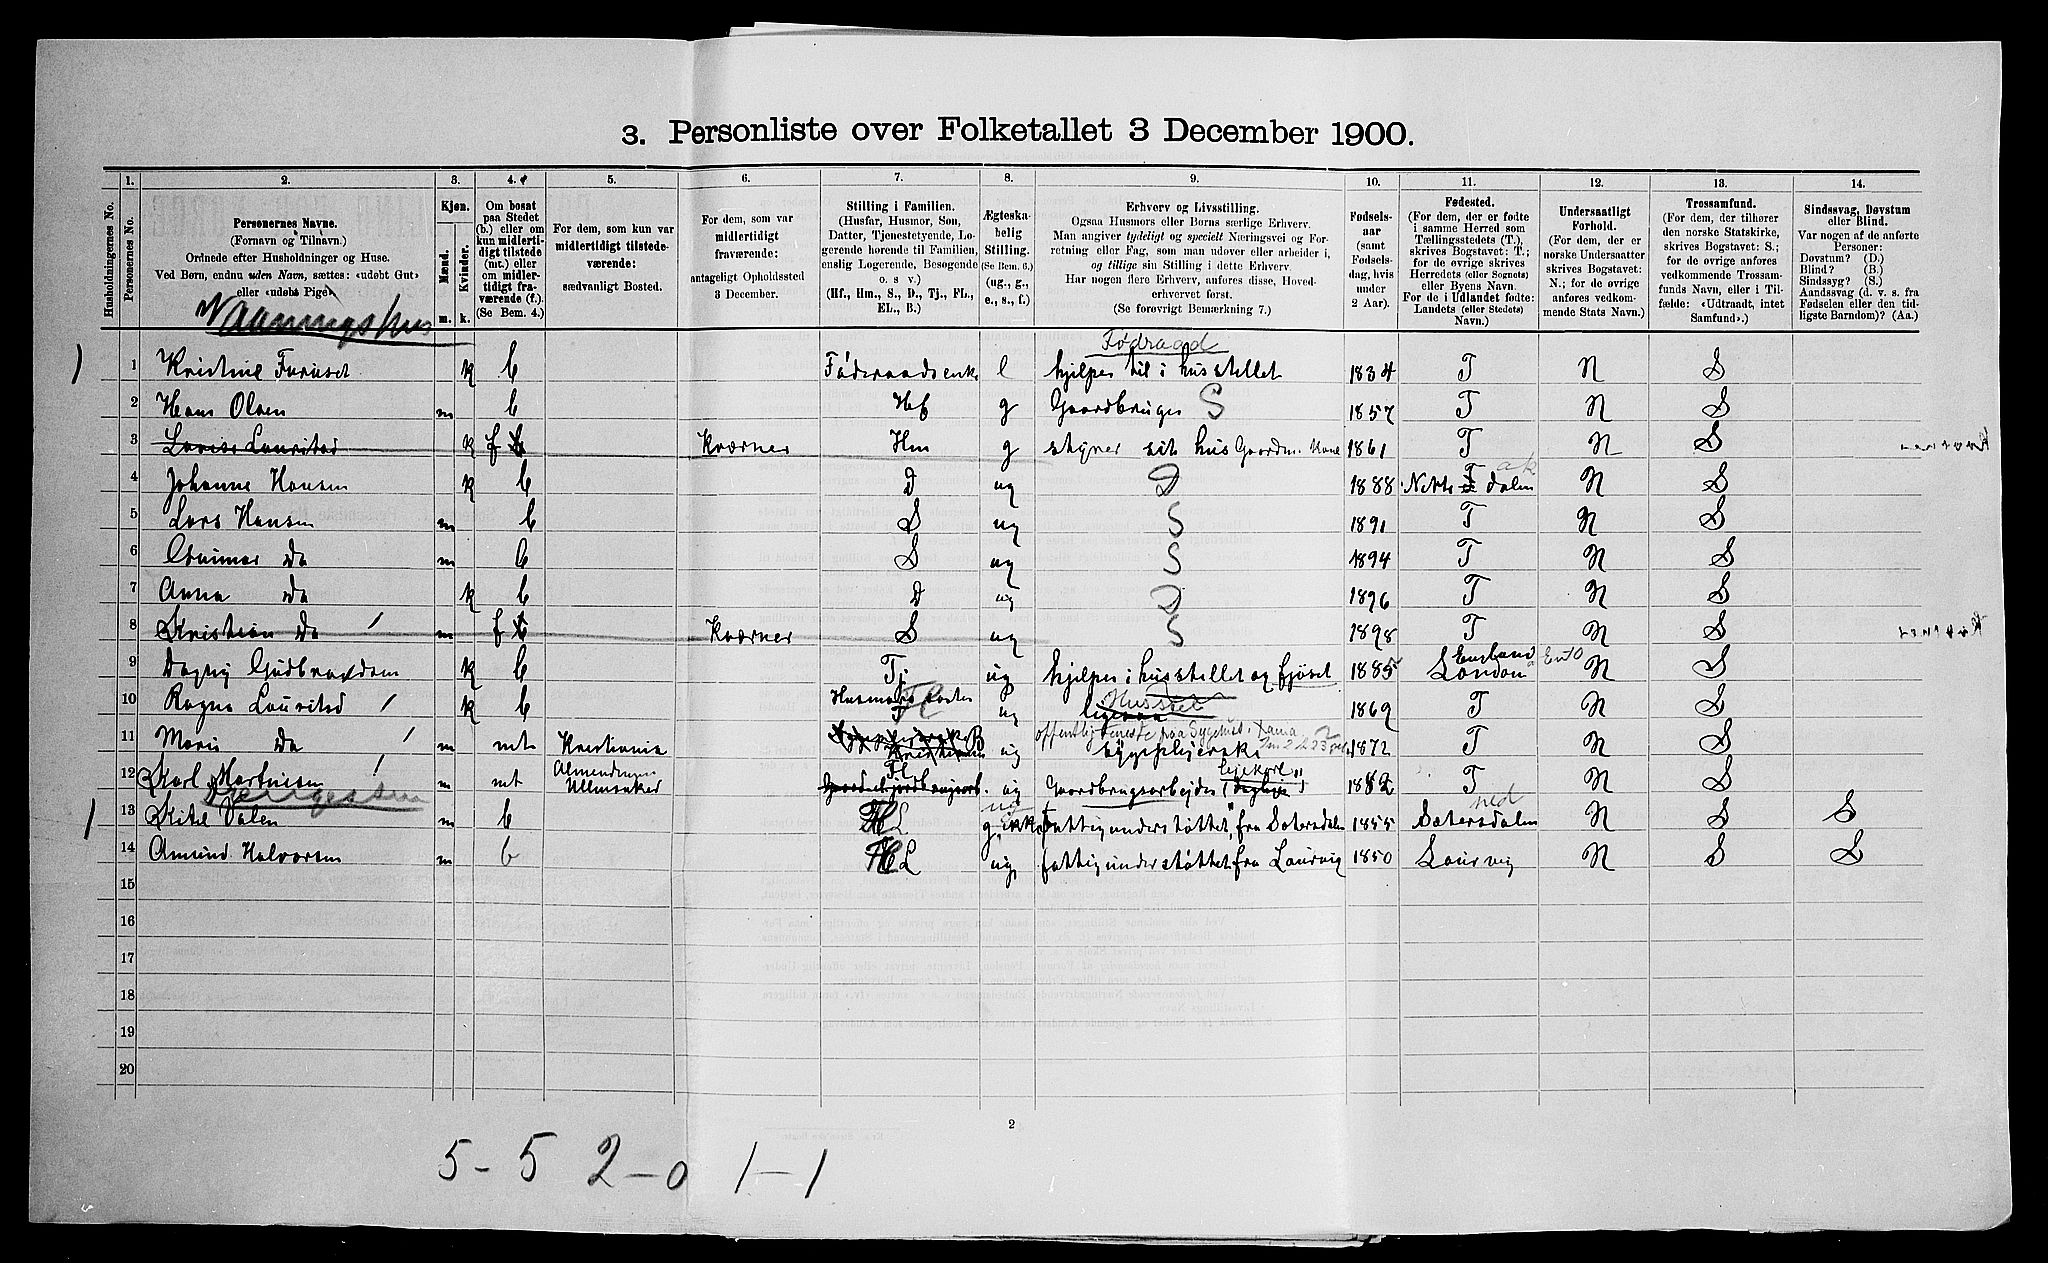 3. Personliste over Folketallet 3 December 1900.
Husholdningernes No.
1. Personernes No.
2. Personernes Navne.
(Fornavn og Tilnavn.)
Ordnede efter Husholdninger og Huse.
Ved Børn, endnu uden Navn, sættes: «udøbt Gut»
eller «udøbt Pige».
3. Kjøn.
Mænd. m.
Kvinder. k.
4.
Om bosat
paa Stedet
(b.) eller om
kun midlerti-
digt tilstede
(mt.) eller
om midler-
tidigt fra-
værende (f.).
(Se Bem. 4.)
5.
For dem, som kun var
midlertidigt tilstede-
værende:
sædvanligt Bosted.
6.
For dem, som var
midlertidigt
fraværende:
antageligt Opholdssted
3 December.
7.
Stilling i Familien.
(Husfar, Husmor, Søn,
Datter, Tjenestetyende, Lo-
gerende hørende til Familien,
enslig Logerende, Besøgende
o. s. v.)
(Hf., Hm., S., D., Tj., FL.,
EL., B.)
8.
Ægteska-
belig
Stilling.
(Se Bem. 6.)
(ug., g.,
e., s., f.)
9.
Erhverv og Livsstilling.
Ogsaa Husmors eller Børns særlige Erhverv.
Man angiver tydeligt og specielt Næringsvei og For-
retning eller Fag, som man udøver eller arbeider i,
og tillige sin Stilling i dette Erhverv.
Har nogen flere Erhverv, anføres disse, Hoved-
erhvervet først.
(Se forøvrigt Bemærkning 7.)
10.
Fødsels-
aar
(samt
Fødsels-
dag, hvis
under
2 Aar).
11.
Fødested.
(For dem, der er fødte
i samme Herred som
Tællingsstedets (T.),
skrives Bogstavet: T.;
for de øvrige skrives
Herredets (eller Sognets)
eller Byens Navn.
For de i Udlandet fødte:
Landets (eller Stedets)
Navn.)
12.
Undersaatligt
Forhold.
(For dem, der er
norske Undersaatter
skrives Bogstavet:
N.; for de øvrige
anføres vedkom-
mende Stats Navn.)
13.
Trossamfund.
(For dem, der tilhører
den norske Statskirke,
skrives Bogstavet: S.;
for de øvrige anføres
vedkommende Trossam-
funds Navn, eller i Til-
fælde: «Udtraadt, intet
Samfund».)
14.
Sindssvag, Døvstum
eller Blind.
Var nogen af de anførte
Personer:
Døvstum? (D.)
Blind? (B.)
Sindssyg? (S.)
Aandssvag (d. v. s. fra
Fødselen eller den tid-
ligste Barndom)? (Aa.)
Vaaningshus
Fødraad
1 Kristine Furuset k b Føderaadsenke e hjelper til i husstellet 1834 T N S
2 Hans Olsen m b Hf g Gaardbruger S 1857 T N S
3 Lovise Lauritsd k f Kværner Hm g styrer sit hus Gaardm. Kone 1861 T N S
4 Johanne Hansen k b D ug D 1888 T N S
5 Lars Hansen m b S ug S 1891 T N S
6 do m b S ug S 1894 T N S
7 Anna do k b D ug D 1896 T N S
8 Kristian do m f Kværner S ug S 1898 T N S
9 Dagny Gudbrandsen k b Tj ug hjelper i husstellet og fjøset 1885 England London N S
10 Ragna Lauritsd k b FL ug 1869 T N S
11 Marie do m mt Kristiania B ug offentlig Tjeneste paa Sygehus sygepleierske 1872 T N S
12 Karl Martinsen m mt Almendingen Ullensaker FL ug Gaardbrugsarbejder 1882 T N S
13 Kitel Valen m b HL g ikke fattigunderstøttet, fra Sætersdalen 1855 Sætersdalen N S S
14 Amund Halvorsen m b HL ug fattigunderstøttet fra Laurvig 1850 Laurvig N S S
15
16
17
18
19
20
2
5-5 2-0 1-1